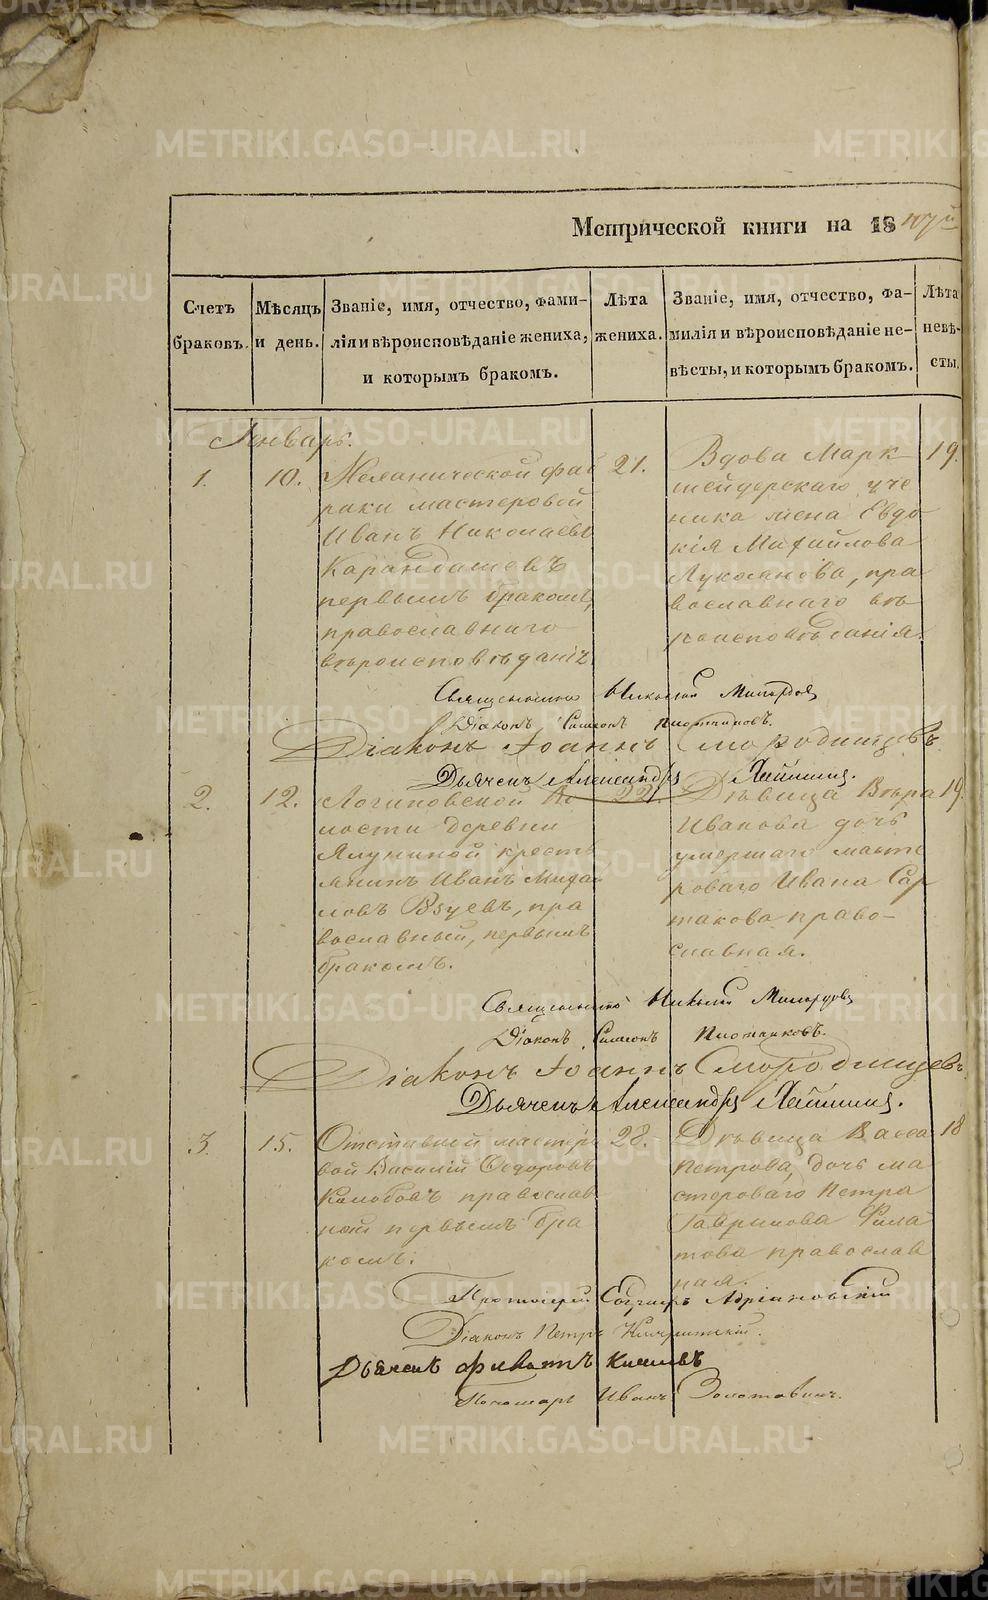 Метрической книги на 18
Счетъ браковъ.
Мѣсяцъ и день.
Званіе, имя, отчество, фами-
лія и вѣроисповѣданіе жениха,
и которымъ бракомъ.
Лѣта жениха.
Званіе, имя, отчество, фа-
милія и вѣроисповѣданіе не-
вѣсты, и которымъ бракомъ.
Лѣта невѣ-
сты.
Январь.
1.
10.
Механической фаб
рики мастеровой
Иванъ Николаевъ
Карандашевъ
первымъ бракомъ,
православнаго
вѣроисповѣданія.
21.
Вдова Марк-
шейдерскаго уче
ника жена Евдо
кія Михайлова
Лукоянова, пра
вославнаго вѣ
роисповѣданія.
19.
Священникъ Николай
Діаконъ Симеонъ Плотниковъ.
Діаконъ Іоаннъ Смородинцевъ
Дьячекъ Александръ
2.
12.
Логиновской Во
лости деревни
Ялуниной кресть
янинъ Иванъ Михай
ловъ Взуевъ, пра
вославный, первымъ
бракомъ.
22.
Дѣвица Вѣра
Иванова дочь
умершаго масте
роваго Ивана Сар
такова право-
славная.
19.
Священникъ Николай
Діаконъ Симеонъ Плотниковъ.
Діаконъ Іоаннъ Смородинцевъ
Дьячекъ Александръ
3.
15.
Отставной мастеро
вой Василій Ѳедоровъ
Колобовъ православ
ной первымъ бра
комъ.
28.
Дѣвица Васса
Петрова, дочь ма
стероваго Петра
Гаврилова Фила
това православ
ная.
18
Протоіерей Адріановскій
Діаконъ Петръ
Дьячекъ
Пономарь Иванъ Золотавинъ.
METRIKI.GASO-URAL.RU